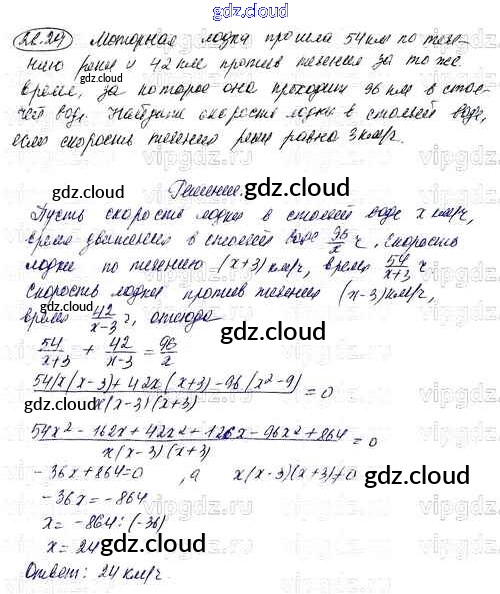 gdz.cloud
22.24 Моторная лодка прошла 54 км по тече-
нию реки и 42 км против течения за то же
время, за которое она проходит 96 км в стоя-
чей воде. Найдите скорость лодки в стоячей воде,
если скорость течения реки равна 3 км/ч.
Решение.
Пусть скорость лодки в стоячей воде x км/ч,
время движения в стоячей воде 96/x ч, скорость
лодки по течению (x+3) км/ч, время 54/x+3 ч
Скорость лодки против течения (x-3) км/ч,
время 42/x-3 ч, отсюда
54/x+3 + 42/x-3 = 96/x
54(x(x-3)+42x(x+3)-96(x²-9)/x(x-3)(x+3) = 0
54x²-162x+42x²+126x-96x²+864/x(x-3)(x+3) = 0
-36x+864=0, а x(x-3)(x+3)≠0
-36x=-864
x=-864:(-36)
x=24
Ответ: 24 км/ч.
gdz.cloud
vipgdz.ru